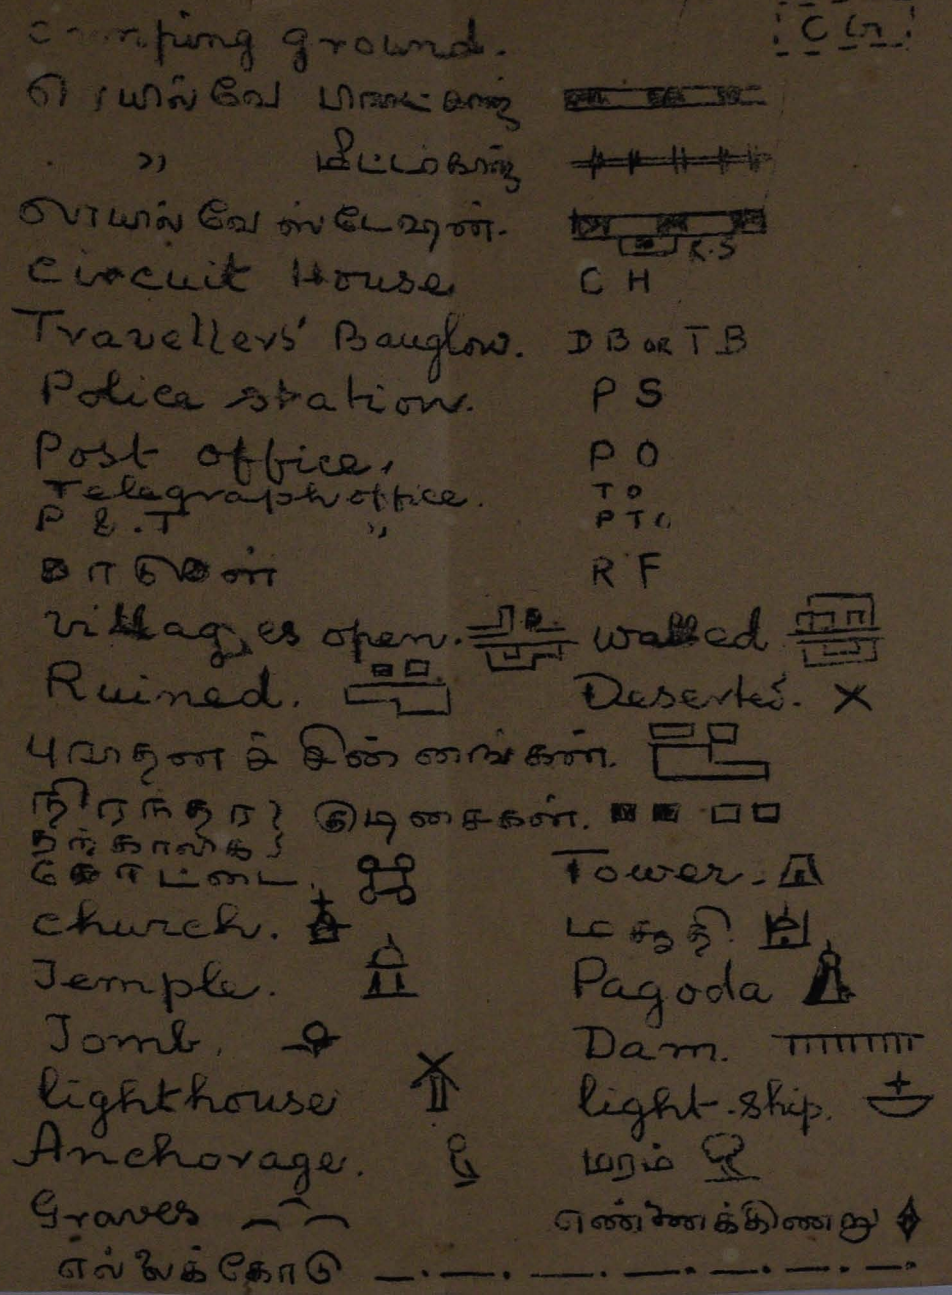 Camping ground. C G
ரெயில்வே பிராட்காஜ்
" மீட்டர்காஜ்
ரெயில்வே ஸ்டேஷன். R.S
Circuit House C H
Travellers' Bauglow. D B OR T B
Police station. P S
Post office, P O
Telegraph office. T O
P & T " P T O
காடுகள் R F
Villages open. walled
Ruined. Deserted.
புராதனச் சின்னங்கள்.
நிரந்தர } குடிசைகள்.
தற்காலிக }
கோட்டை. Tower.
church. மசூதி.
Temple. Pagoda
Tomb. Dam.
lighthouse light-ship.
Anchorage. மரம்
Graves எண்ணைக்கிணறு
எல்லைக்கோடு